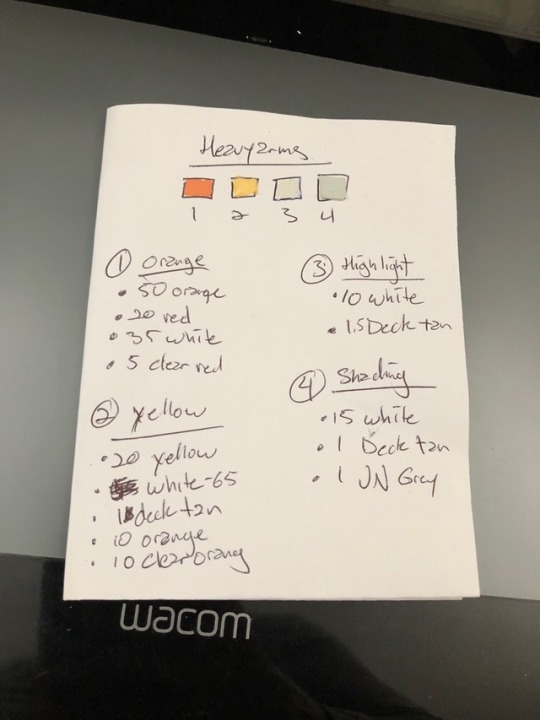 Heavyarms
1 2 3 4
① Orange
• 50 orange
• 20 red
• 35 white
• 5 clear red
② Yellow
• 20 yellow
• white-65
• 1 deck tan
• 10 orange
• 10 clear orang
③ Highlight
• 10 white
• 1.5 Deck tan
④ Shading
• 15 white
• 1 Deck tan
• 1 JN Gray
wacom